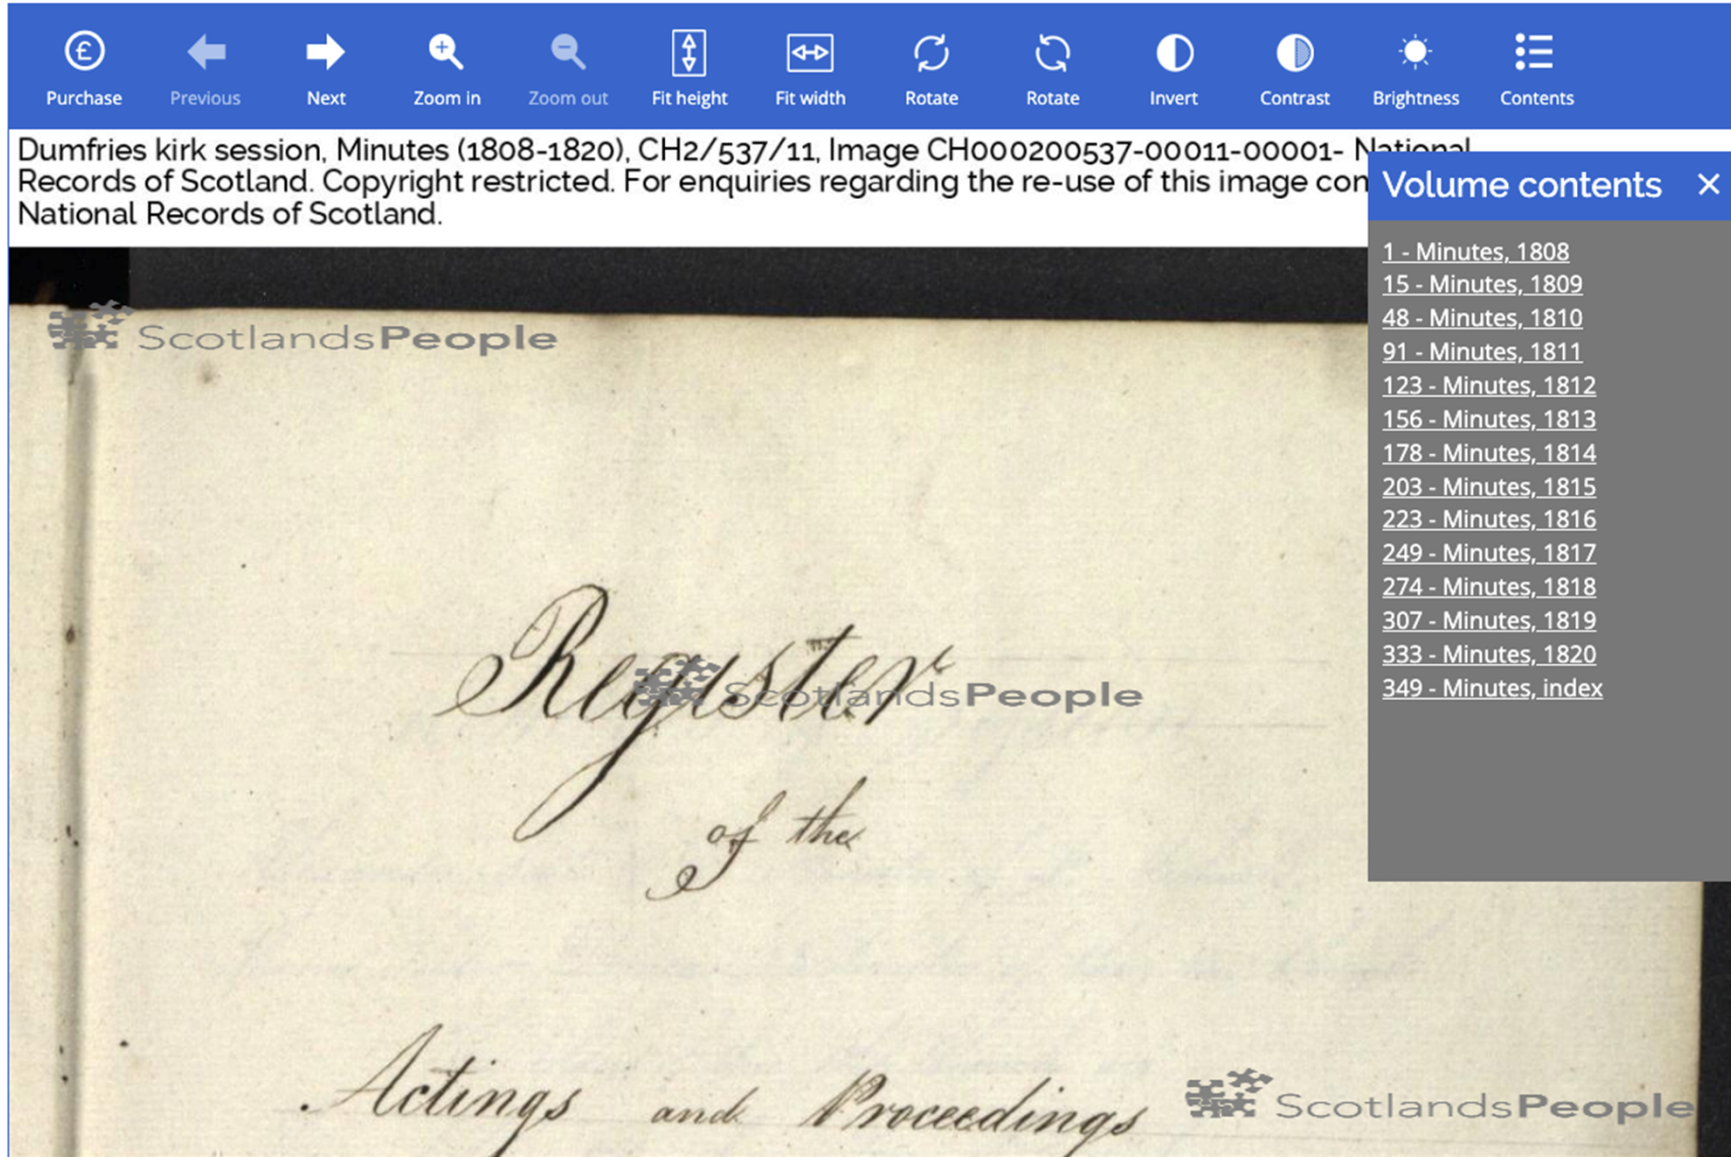 Purchase Previous Next Zoom in Zoom out Fit height Fit width Rotate Rotate Invert Contrast Brightness Contents
Dumfries kirk session, Minutes (1808-1820), CH2/537/11, Image CH000200537-00011-00001- National
Records of Scotland. Copyright restricted. For enquiries regarding the re-use of this image con
National Records of Scotland.
Volume contents
1 - Minutes, 1808
15 - Minutes, 1809
48 - Minutes, 1810
91 - Minutes, 1811
123 - Minutes, 1812
156 - Minutes, 1813
178 - Minutes, 1814
203 - Minutes, 1815
223 - Minutes, 1816
249 - Minutes, 1817
274 - Minutes, 1818
307 - Minutes, 1819
333 - Minutes, 1820
349 - Minutes, index
ScotlandsPeople
Register
ScotlandsPeople
of the
Actings and Proceedings
ScotlandsPeople